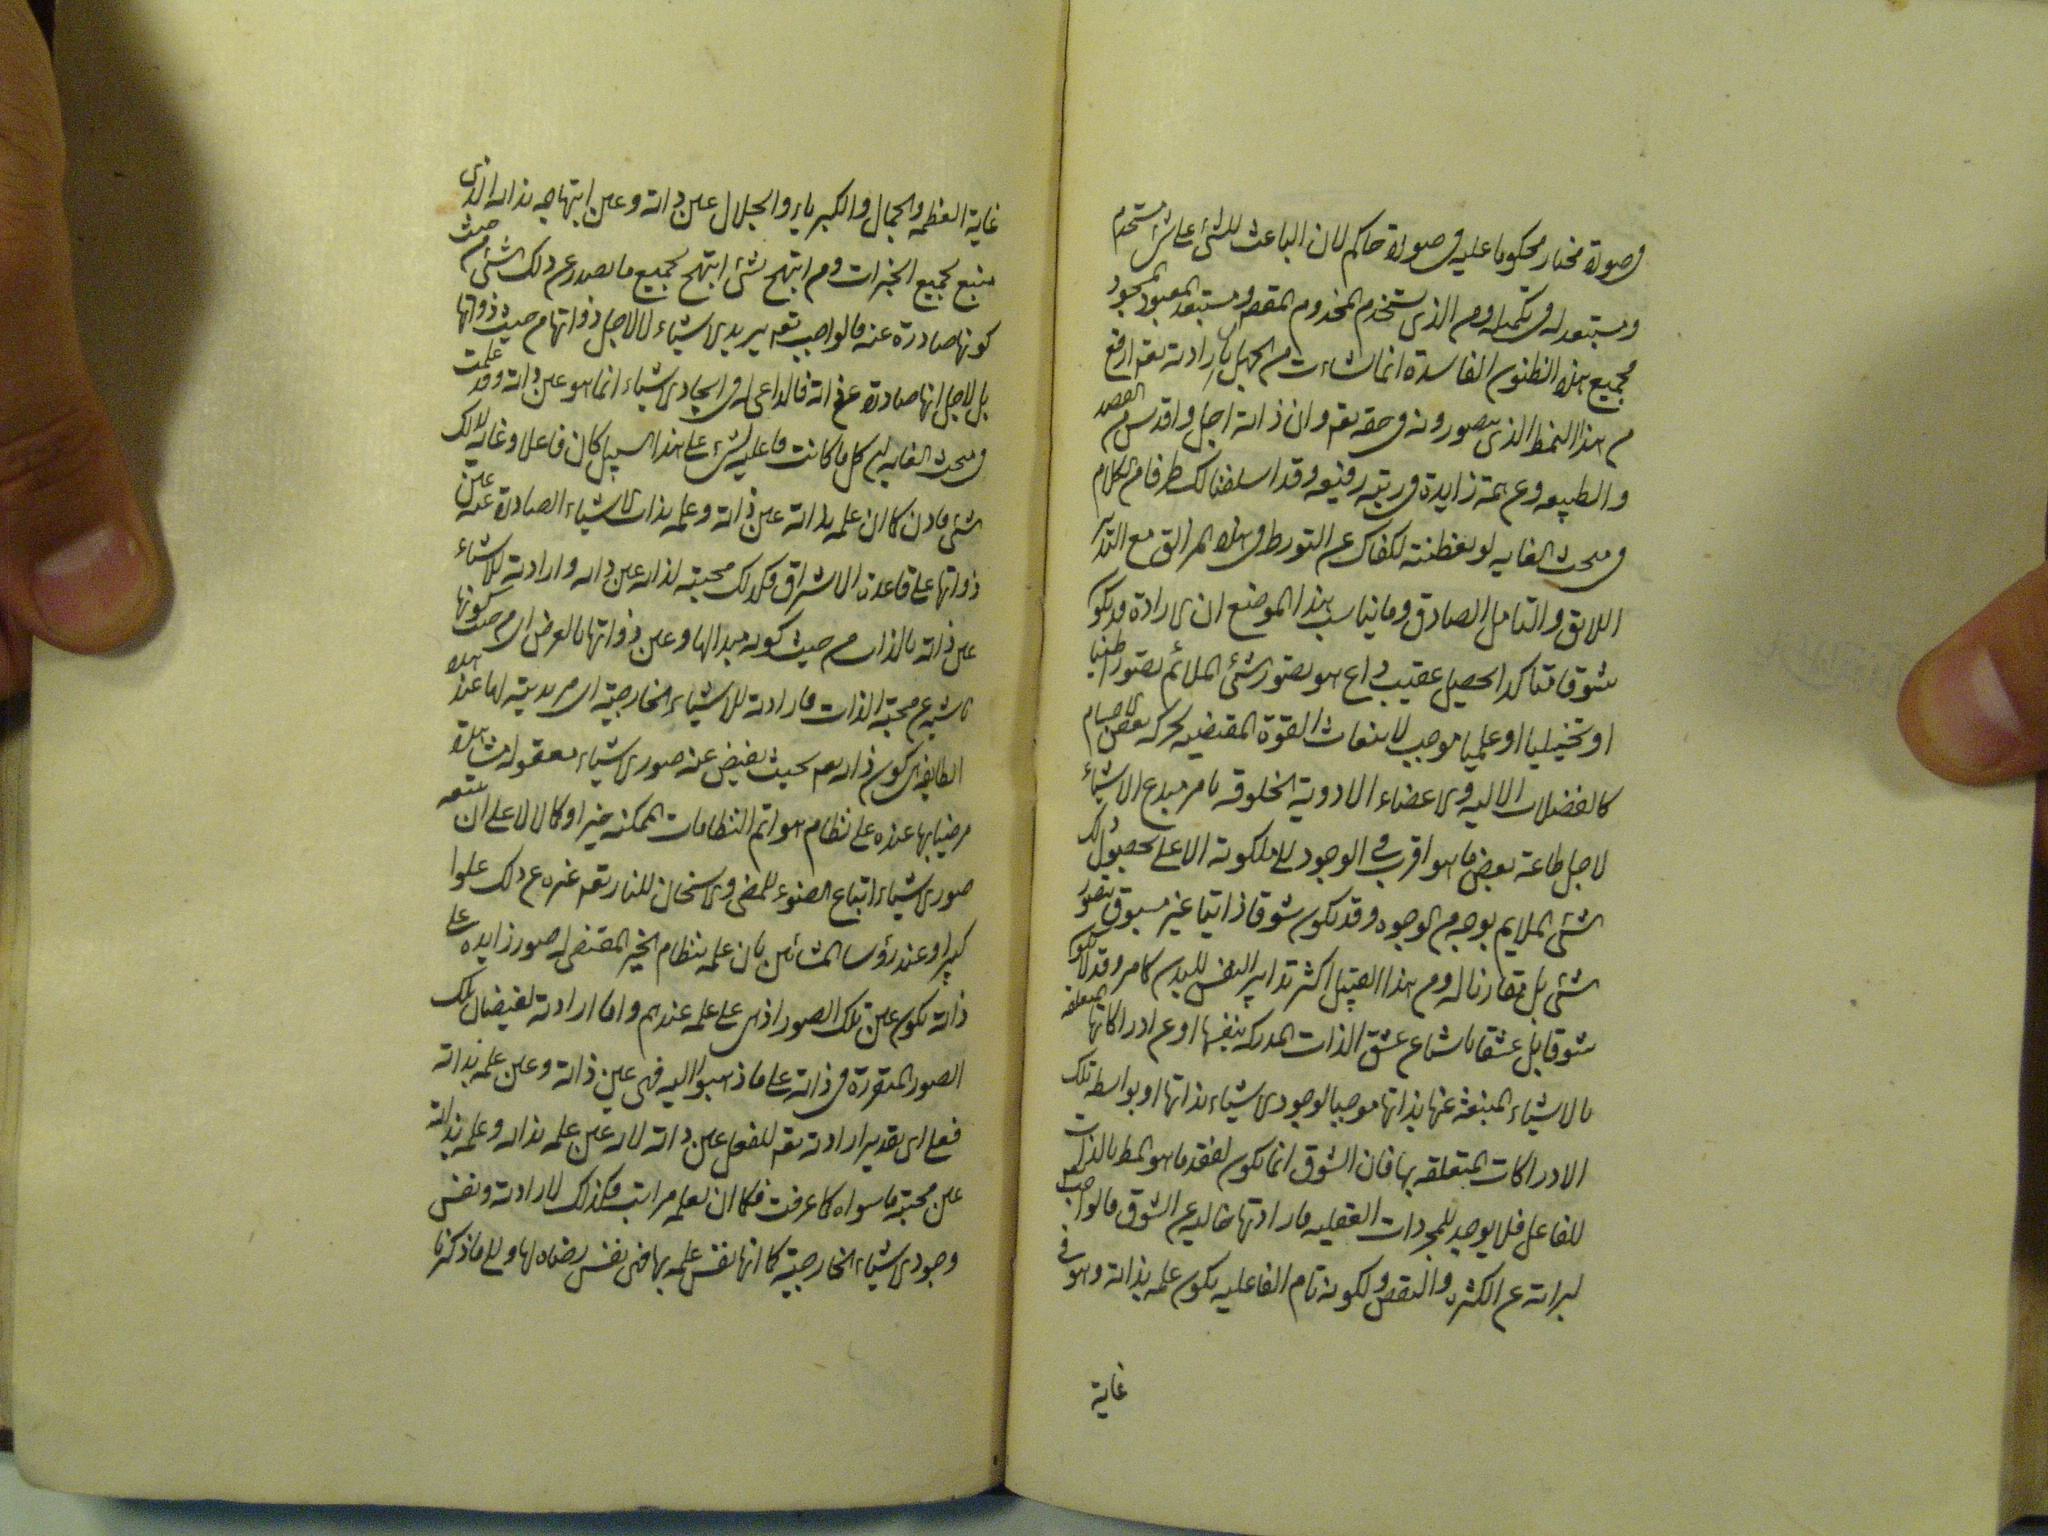 فی صورة مختار محکوما علیه فی صورة حاکم لان الباعث للشئ علی شئ مستخدم
ومستبعد له فی تکمیله ومن الذی یستخدم المخدوم المقصود ویستبعد المعبود المسجود
فجمیع هذه الظنون الفاسدة انما نشاءت من الجهل بارادته تعم ارفع
من هذا النمط الذی یتصورونه فی حقه تعم وان ذاته اجل واقدس من القصد
والطبیعه وعن همة زایدة فی رتبه رفیعه وقد اسلفنا لک طرفا من الکلام
فی مبحث الغایه لو تفطنته لکفاک عن التورط فی هذه المزالق مع التدبر
اللایق والتامل الصادق ومما یناسب هذا الموضع ان الارادة قد یکون
شوقا متاکدا یحصل عقیب داع هو تصور الشئ الملائم تصورا ظنیا
او تخیلیا او علمیا موجب لانبعاث القوة المقتضیه لحرکه بعض الاجسام
کالعضلات الالیه والاعضاء الادویة المخلوقه بامر مبدع الاشیاء
لاجل طاعة بعض ما هو اقرب فی الوجود الی ملکوته الاعلی لحصول ذلک
الشئ الملایم بوجه من الوجوه وقد یکون شوقا ذاتیا غیر مسبوق بتصور
شئ بل مقارنا له ومن هذا القبیل اکثر تدابیر النفس للبدن کما مر وقد لا یکون
شوقا بل عشقا ناشئا عن عشق الذات المدرکه بنفسها او عن ادراکاتها المتعلقه
بالاشیاء المنبعثه عنها بذاتها موجبا لوجود الاشیاء بذاتها او بواسطه تلک
الادراکات المتعلقه بها فان الشوق انما یکون لفقد ما هو المط بالذات
للفاعل فلا یوجد للمجردات العقلیه فارادتها خالیه عن الشوق فالواجب تعم
لبراته عن الکثرة والنقص ولکونه تام الفاعلیه یکون علمه بذاته وهو فی
غایة
غایة العظمه والجمال والکبریاء والجلال عین ذاته وعین ابتهاجه بذاته الذی
منبع لجمیع الخیرات ومن ابتهج بشئ ابتهج بجمیع ما یصدر عن ذلک الشئ من حیث
کونها صادرة عنه فالواجب تعم یرید الاشیاء لا لاجل ذواتها من حیث ذواتها
بل لاجل انها صادرة عن ذاته فالداعی له فی ایجاد الاشیاء انما هو عین ذاته وقد علمت
فی مبحث الغایه ان کل ما کانت فاعلیه لشئ علی هذا السبیل کان فاعلا وغایة لذلک
الشئ فاذن کما ان علمه بذاته عین ذاته وعلمه بذات الاشیاء الصادرة عنه عین
ذواتها علی قاعدة الاشراق فکذلک محبته لذاته عین ذاته وارادته للاشیاء
عین ذاته بالذات من حیث کونه مبدا لها وعین ذواتها بالعرض ای من حیث کونها
ناشیه عن محبة الذات فارادته للاشیاء الخارجیة ای مریدیته لها عند هذه
الطایفه ای کون ذاته تعم بحیث یفیض عنه صور الاشیاء معقوله مشاهدة
مرضیا بها عنده علی نظام هو اتم النظامات الممکنه خیرا وکمالا لا علی ان یتبعه
صور الاشیاء اتباع الضوء للمضی والاسخان للنار تعم غیره عن ذلک علوا
کبیرا وعند رؤسا المشائین بان علمه بنظام الخیر المقتضی له صور زایده علی
ذاته یکون عین تلک الصور اذ هی علی علمه عندهم واما ارادته لفیضان تلک
الصور المتقررة فی ذاته علی ما ذهبوا الیه فهی عین ذاته وعین علمه بذاته
فعلی ای تقدیر ارادته تعم للفعل عین ذاته لانه عین علمه بذاته وعلمه بذاته
عین محبته ما سواه کما عرفت فکما ان لعلمه مراتب فکذلک لارادته ونفس
وجود الاشیاء الخارجیة کما انها نفس علمه بها فهی نفس رضاه لها والی ما ذکرنا